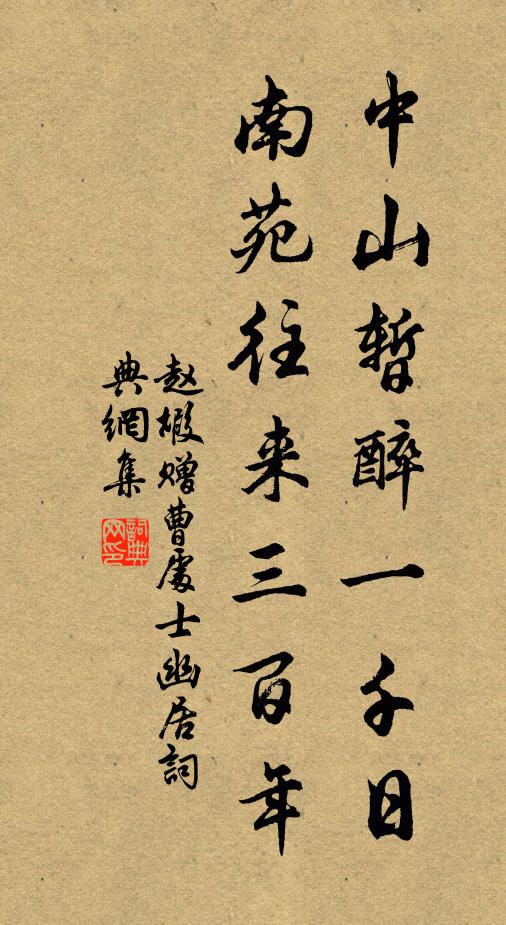 中山暫醉一千日
南苑往来三百年
赵嘏赠曹處士幽居詞
典網集
詞典
网印